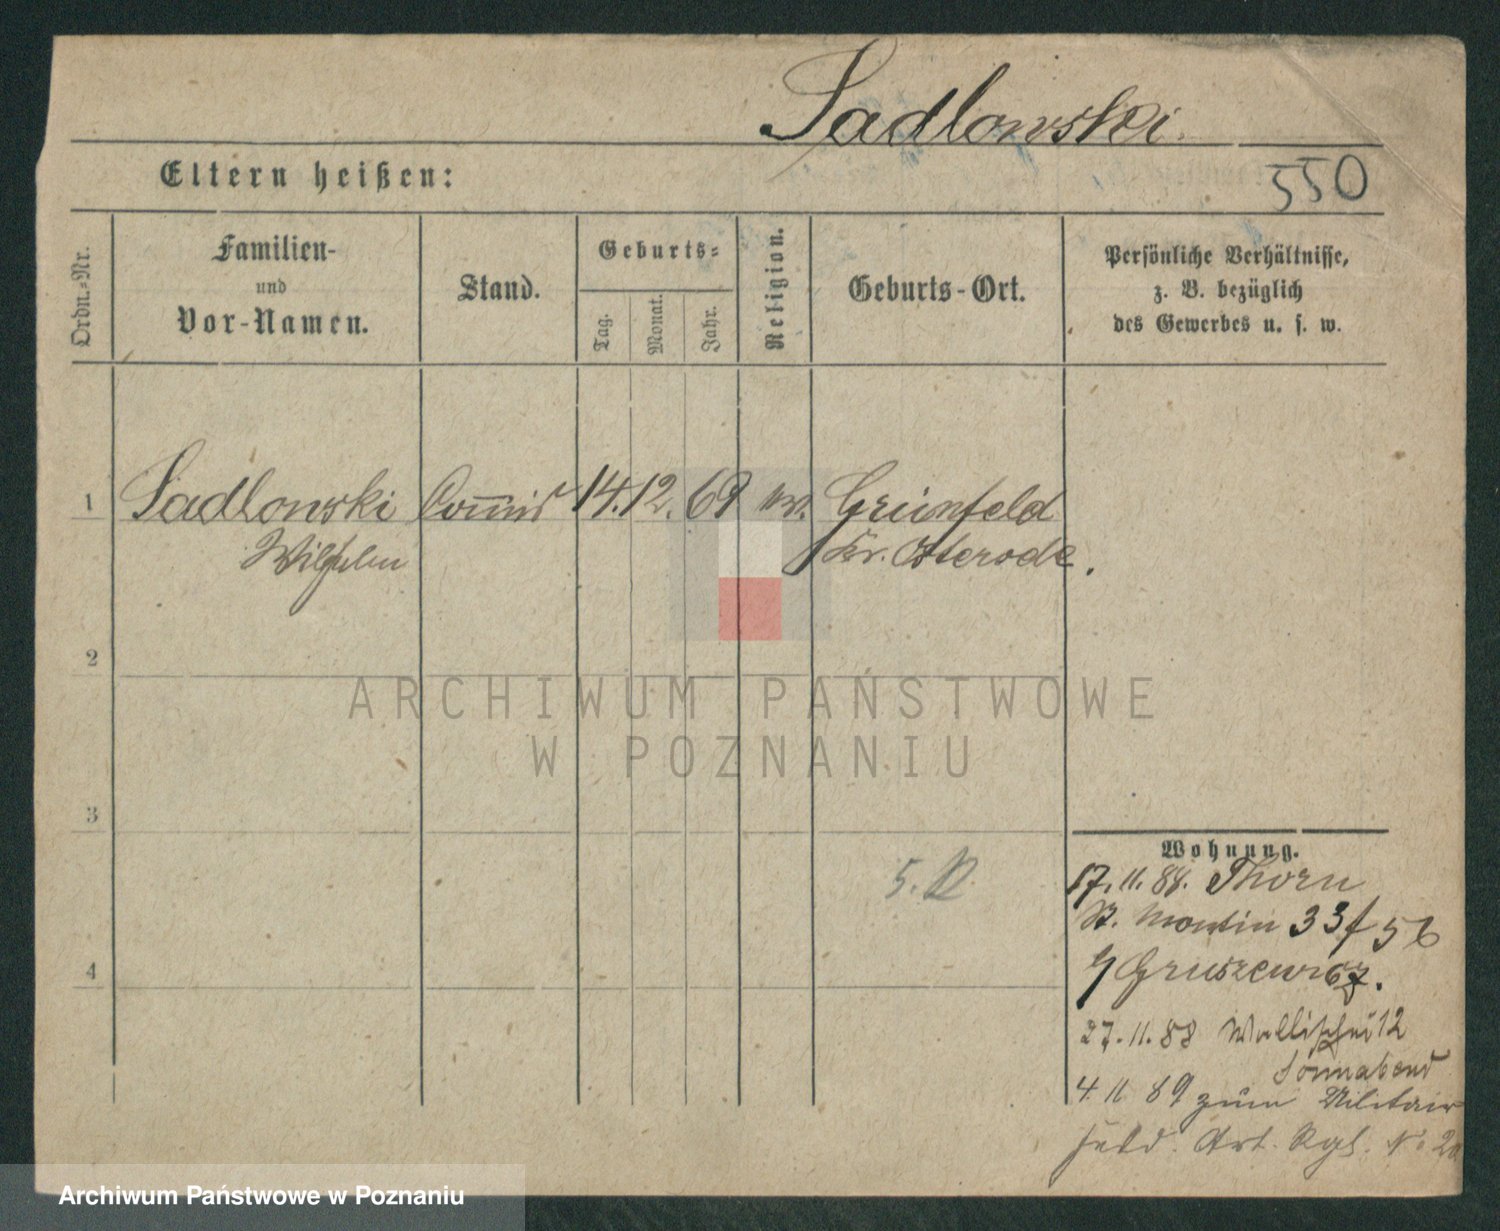 Sadlowski.
Eltern heißen:
550
Ordn.-Nr.
Familien-
und
Vor-Namen.
Stand.
Geburts-
Tag.
Monat.
Jahr.
Religion.
Geburts-Ort.
Persönliche Verhältnisse,
z. B. bezüglich
des Gewerbes u. s. w.
1 Sadlowski Commis 14. 12. 69 Grünfeld
Wilhelm Kr. Osterode.
2
3
4
5.
Wohnung.
17. 11. 88. Thorn
St. Martin 33 56
Gruszewicz.
27. 11. 88 Wallischei 12
Sonnabend
4 11 89 zum Militair
Feld. Art. Rgt. No 20
ARCHIWUM PAŃSTWOWE
W POZNANIU
Archiwum Państwowe w Poznaniu